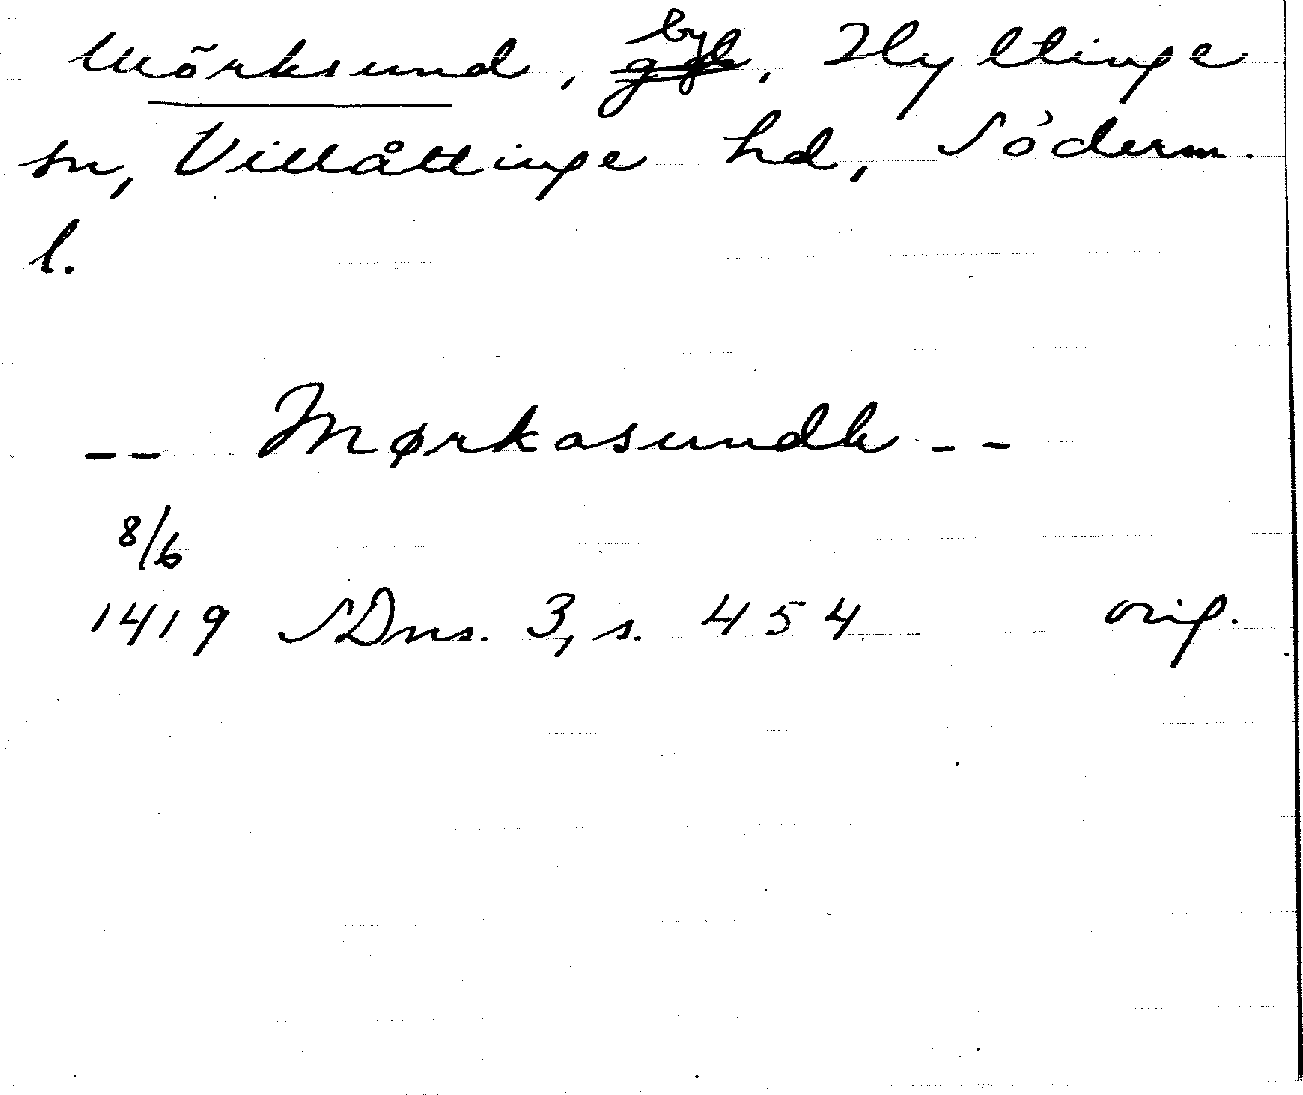 Mörksund, by, Hyltinge
sn, Villåttinge hd, Söderm.
l.
-- Mørkasundh --
8/6
1419 SDns. 3, s. 454 orig.